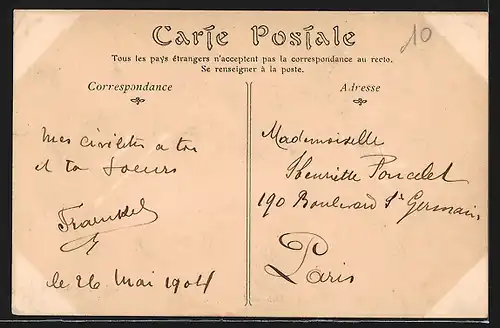 Carte Postale
10
Tous les pays étrangers n'acceptent pas la correspondance au recto.
Se renseigner à la poste.
Correspondance
Mes civilités a toi
et ta soeurs
Fraenkel
le 26 Mai 1904
Adresse
Mademoiselle
Henriette Poncelet
190 Boulevard St Germain
Paris